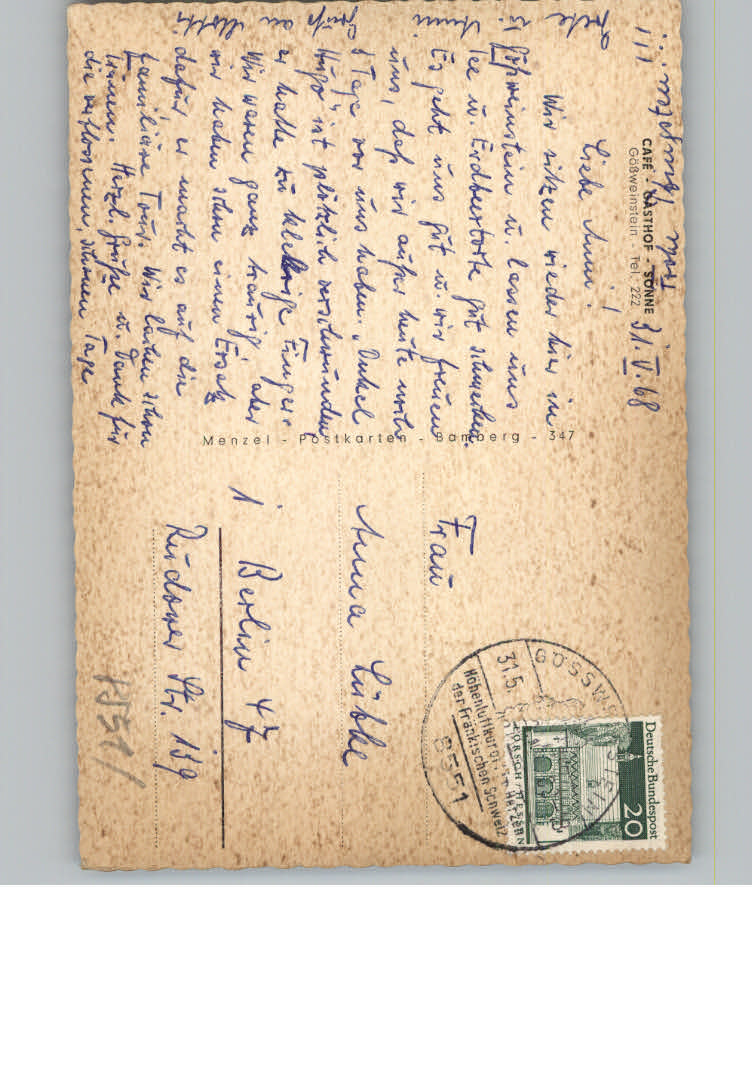 CAFÉ - GASTHOF - SONNE
Gößweinstein - Tel. 222
31.V.68
Liebe Anni!
Wir sitzen wieder hier in
Gößweinstein u. lassen uns
Tee u. Erdbeertorte gut schmecken.
Es geht uns gut u. wir freuen
uns, daß wir außer heute noch
8 Tage vor uns haben. „Onkel
Hugo" ist plötzlich verschwunden
er hatte zu klebrige Finger.
Wir waren ganz traurig aber
wir haben schon einen Ersatz
dafür er macht es auf die
familiäre Tour. Wir lachen schon
Tränen. Herzl. Grüße u. Dank für
die verflossenen, schönen Tage
Menzel - Postkarten - Bamberg - 347
Frau
Anna Lübke
1 Berlin 47
Rudower Str. 159
1551/
Deutsche Bundespost
20
LORSCH / HESSEN
GÖSSWEINSTEIN
31.5.
Höhenluftkurort im Herzen
der Fränkischen Schweiz
8551